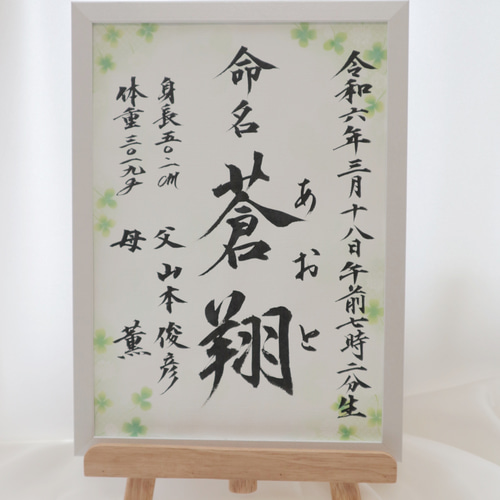 令和六年三月十八日午前七時二分生
命名 蒼翔
あおと
身長五〇.二cm
体重三〇一九g
父 山本俊彦
母 薫